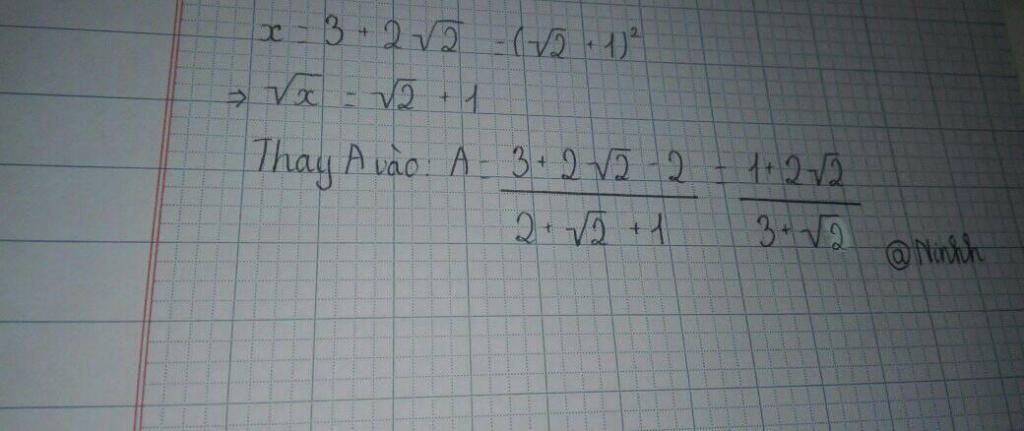 x = 3 + 2√2 = (√2 + 1)²
⇒ √x = √2 + 1
Thay A vào: A = (3 + 2√2 - 2)/(2 + √2 + 1) = (1 + 2√2)/(3 + √2)
@Ninhh